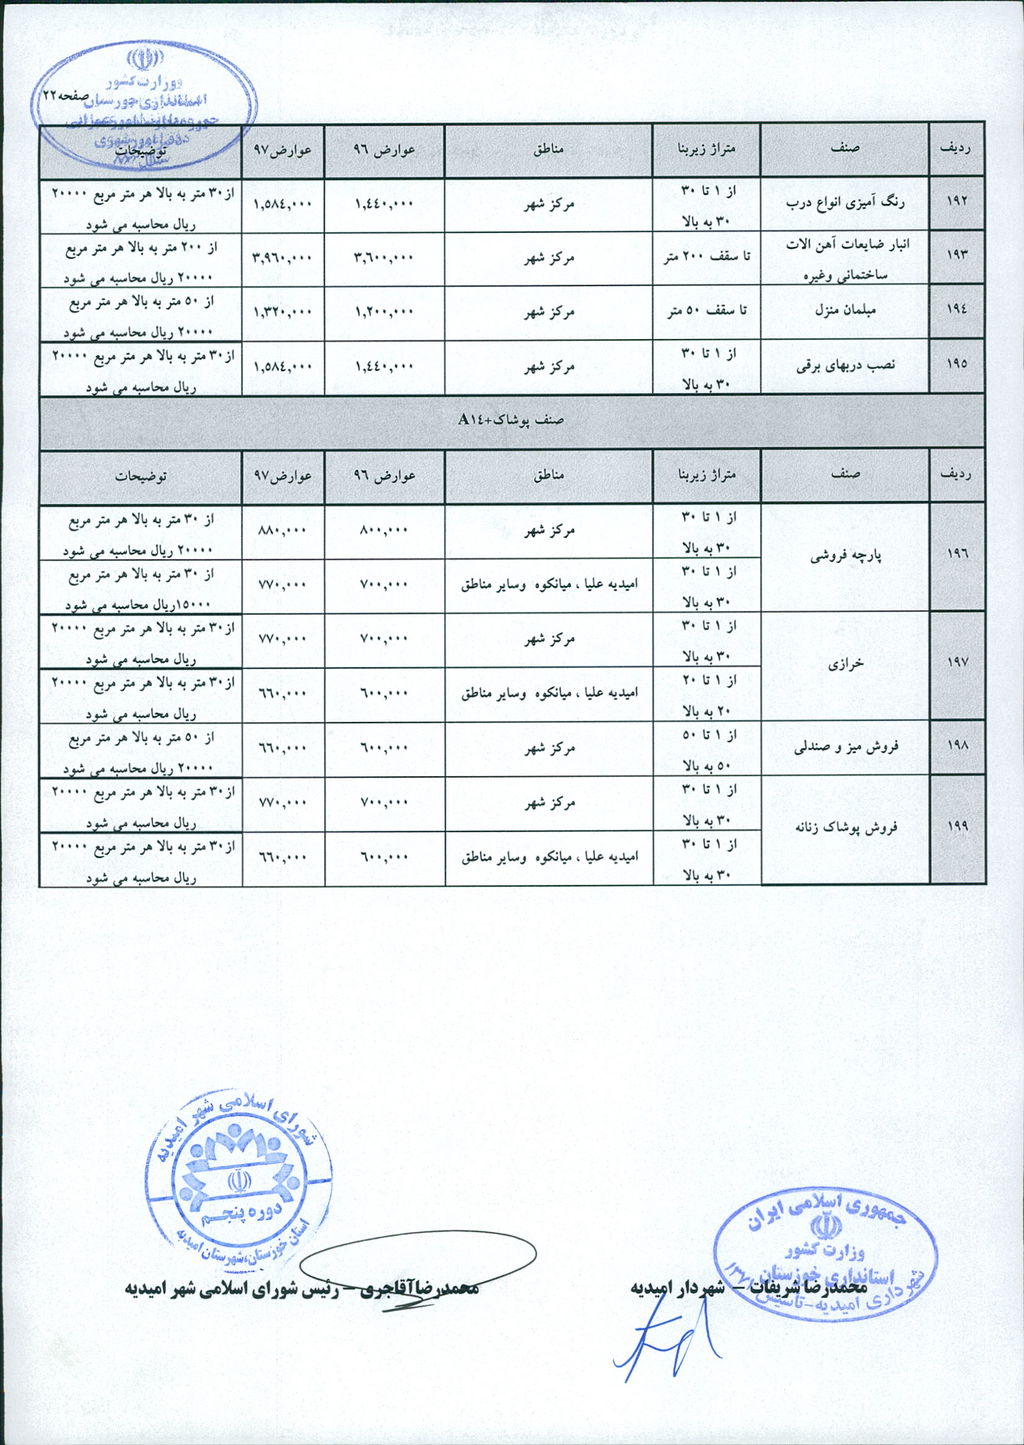 وزارت کشور
صفحه۲۲
ردیف صنف متراژ زیربنا مناطق عوارض ۹۶ عوارض۹۷ توضیحات
۱۹۲ رنگ آمیزی انواع درب از ۱ تا ۳۰ ۳۰ به بالا مرکز شهر ۱,۴۴۰,۰۰۰ ۱,۵۸۴,۰۰۰ از۳۰ متر به بالا هر متر مربع ۲۰۰۰۰ ریال محاسبه می شود
۱۹۳ انبار ضایعات آهن الات ساختمانی وغیره تا سقف ۲۰۰ متر مرکز شهر ۳,۶۰۰,۰۰۰ ۳,۹۶۰,۰۰۰ از ۲۰۰ متر به بالا هر متر مربع ۲۰۰۰۰ ریال محاسبه می شود
۱۹۴ مبلمان منزل تا سقف ۵۰ متر مرکز شهر ۱,۲۰۰,۰۰۰ ۱,۳۲۰,۰۰۰ از ۵۰ متر به بالا هر متر مربع ۲۰۰۰۰ ریال محاسبه می شود
۱۹۵ نصب دربهای برقی از ۱ تا ۳۰ ۳۰ به بالا مرکز شهر ۱,۴۴۰,۰۰۰ ۱,۵۸۴,۰۰۰ از۳۰ متر به بالا هر متر مربع ۲۰۰۰۰ ریال محاسبه می شود
صنف پوشاک+A۱۴
ردیف صنف متراژ زیربنا مناطق عوارض ۹۶ عوارض۹۷ توضیحات
۱۹۶ پارچه فروشی از ۱ تا ۳۰ ۳۰ به بالا مرکز شهر ۸۰۰,۰۰۰ ۸۸۰,۰۰۰ از ۳۰ متر به بالا هر متر مربع ۲۰۰۰۰ ریال محاسبه می شود
از ۱ تا ۳۰ ۳۰ به بالا امیدیه علیا ، میانکوه وسایر مناطق ۷۰۰,۰۰۰ ۷۷۰,۰۰۰ از ۳۰ متر به بالا هر متر مربع ۱۵۰۰۰ریال محاسبه می شود
۱۹۷ خرازی از ۱ تا ۳۰ ۳۰ به بالا مرکز شهر ۷۰۰,۰۰۰ ۷۷۰,۰۰۰ از۳۰ متر به بالا هر متر مربع ۲۰۰۰۰ ریال محاسبه می شود
از ۱ تا ۲۰ ۲۰ به بالا امیدیه علیا ، میانکوه وسایر مناطق ۶۰۰,۰۰۰ ۶۶۰,۰۰۰ از۳۰ متر به بالا هر متر مربع ۲۰۰۰۰ ریال محاسبه می شود
۱۹۸ فروش میز و صندلی از ۱ تا ۵۰ ۵۰ به بالا مرکز شهر ۶۰۰,۰۰۰ ۶۶۰,۰۰۰ از ۵۰ متر به بالا هر متر مربع ۲۰۰۰۰ ریال محاسبه می شود
۱۹۹ فروش پوشاک زنانه از ۱ تا ۳۰ ۳۰ به بالا مرکز شهر ۷۰۰,۰۰۰ ۷۷۰,۰۰۰ از۳۰ متر به بالا هر متر مربع ۲۰۰۰۰ ریال محاسبه می شود
از ۱ تا ۳۰ ۳۰ به بالا امیدیه علیا ، میانکوه وسایر مناطق ۶۰۰,۰۰۰ ۶۶۰,۰۰۰ از۳۰ متر به بالا هر متر مربع ۲۰۰۰۰ ریال محاسبه می شود
جمهوری اسلامی ایران
وزارت کشور
استانداری خوزستان
شهرداری امیدیه-تاسیس ۱۳۷۱
محمدرضا شریفات – شهردار امیدیه
شورای اسلامی شهر امیدیه
دوره پنجم
استان خوزستان،شهرستان امیدیه
محمدرضا آقاجری – رئیس شورای اسلامی شهر امیدیه